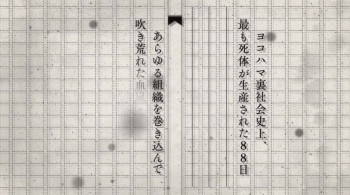 ヨコハマ裏社会史上、
最も死体が生産された88日
あらゆる組織を巻き込んで
吹き荒れた血